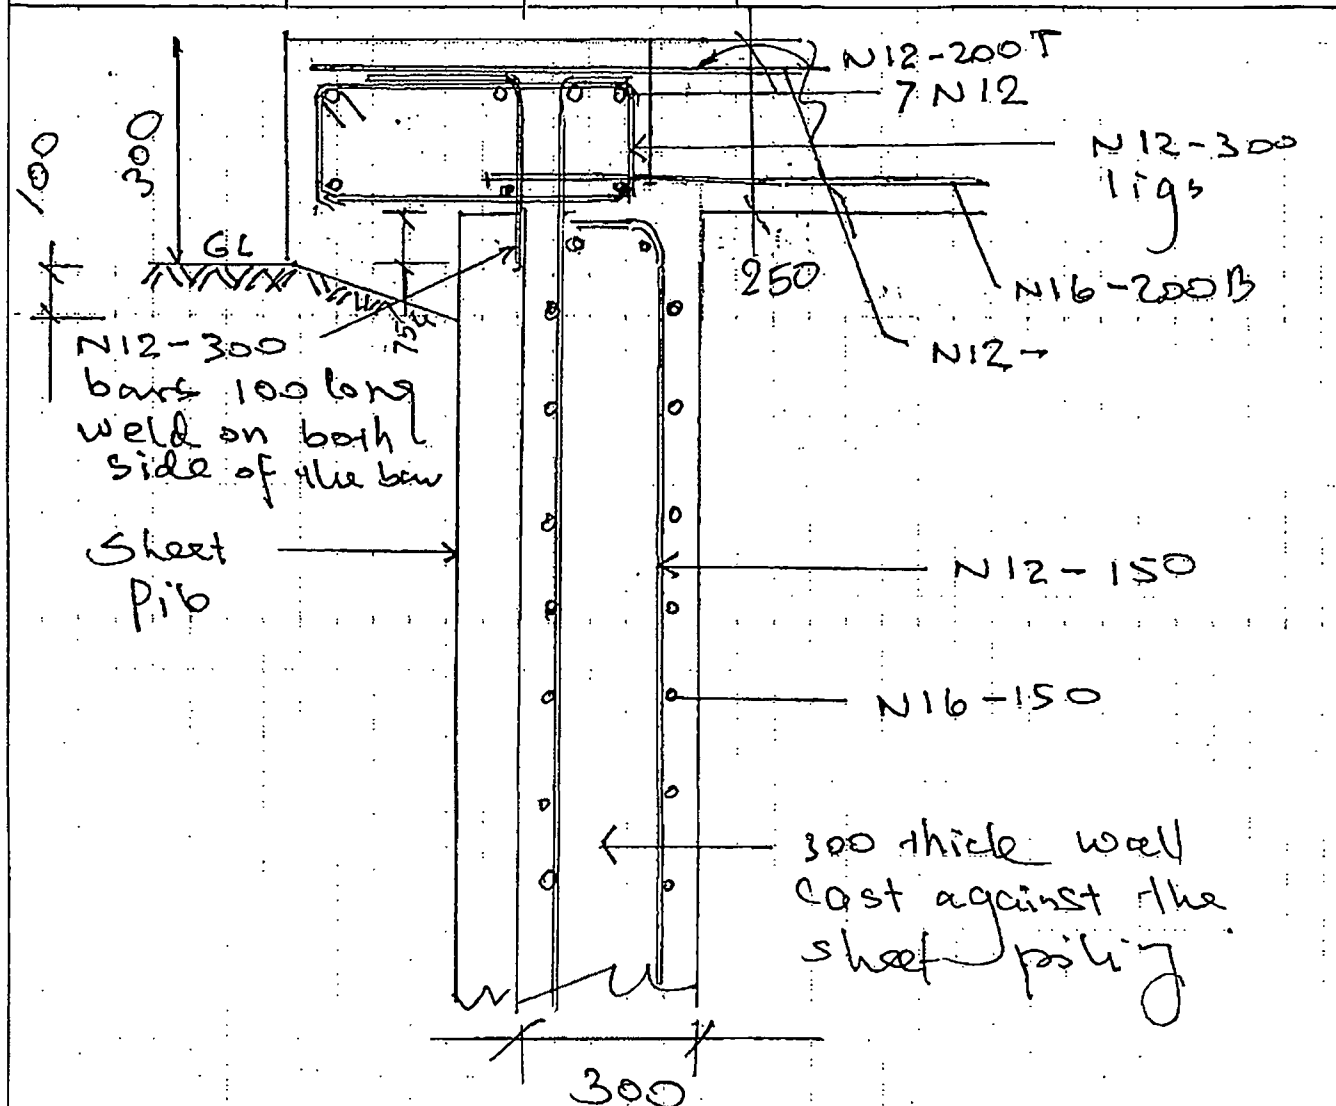 N12-200T
7 N12
N12-300
ligs
300
100
GL
250
N16-200B
N12-
75
N12-300
bars 100 long
weld on both
side of the bar
Sheet
N12-150
N16-150
300 thick wall
cast against the
sheet piling
300